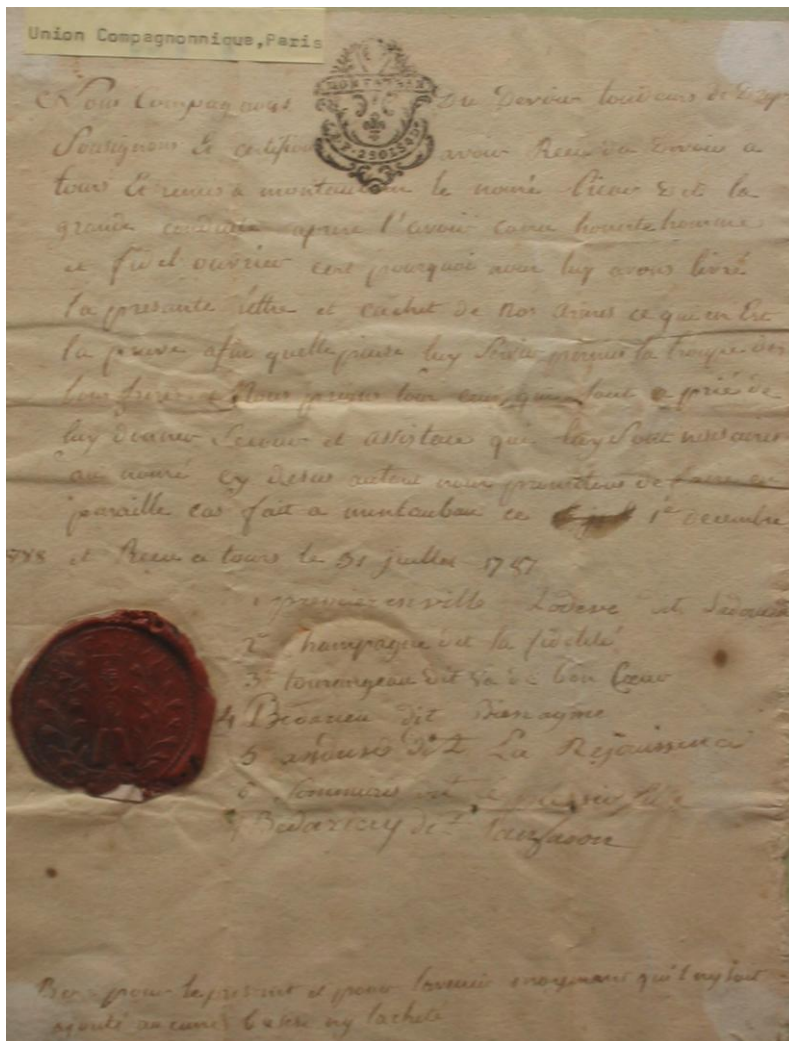 Union Compagnonnique, Paris
MONTAUBAN
Nous Compagnons Du Devoir tondeurs de
Soussignons et certifions avoir Receu du Devoir a
tours Et remis a montauban le nomé dit la
grande conduite apres l'avoir connu honnete homme
et fidel ouvrier cest pourquoi nous luy avons livré
la presante lettre et cachet de nos armes ce qui en Est
la preuve afin quelle puisse luy servir parmis la troupe des
bons freres Nous prions tous ceux qui sont a prié de
luy donner secour et assistance qui luy sont nesesaires
au nomé cy desus autent nous prometons de faire en
paraille cas fait a montauban ce 1e decembre
1788 et Receu a tours le 31 juillet 1787
1 premier en ville Lodeve dit
2 champagne dit la fidelité
3 tourangeau dit va de bon Cœur
4 Bedarieu dit bienaymé
5 dit La Rejouissence
6 Sommieres dit
7 dit
Bon pour le present et pour l'avenir moyenant qu'il ny soit
ajouté aucunes ny lacheté